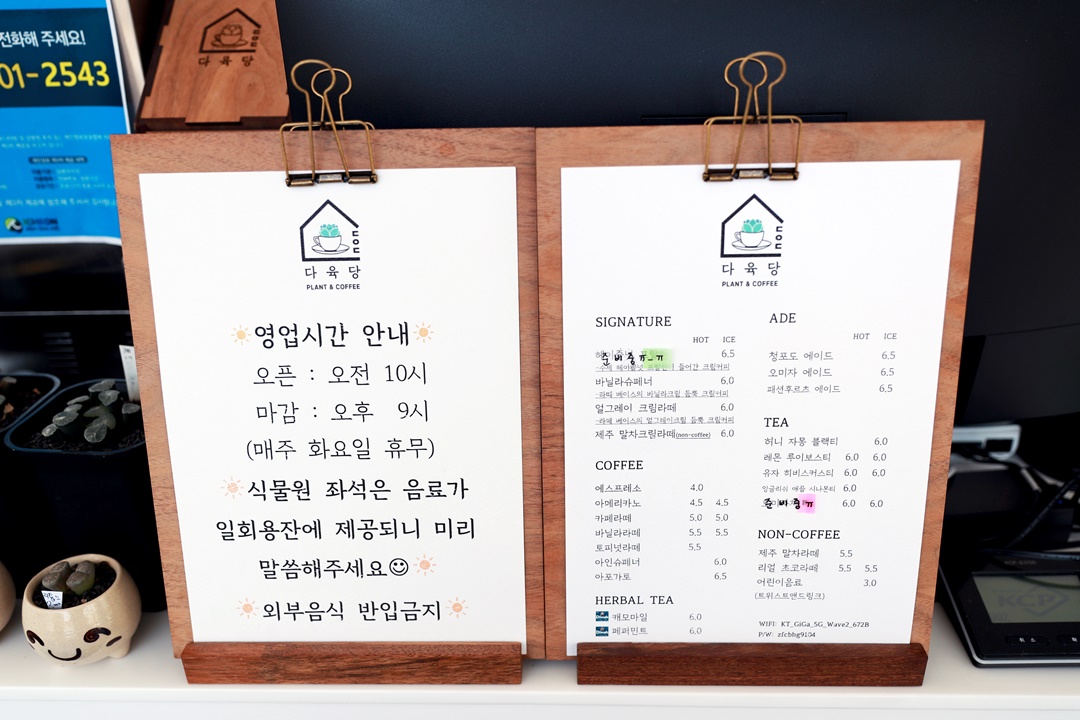 전화해 주세요!
01-2543
다육당
다육당
PLANT & COFFEE
영업시간 안내
오픈 : 오전 10시
마감 : 오후 9시
(매주 화요일 휴무)
식물원 좌석은 음료가
일회용잔에 제공되니 미리
말씀해주세요
외부음식 반입금지
다육당
PLANT & COFFEE
SIGNATURE
HOT ICE
준비중ㅠ-ㅠ 6.5
바닐라슈페너 6.0
-라떼 베이스의 바닐라크림 듬뿍 크림커피
얼그레이 크림라떼 6.0
-라떼 베이스의 얼그레이크림 듬뿍 크림커피
제주 말차크림라떼(non-coffee) 6.0
COFFEE
에스프레소 4.0
아메리카노 4.5 4.5
카페라떼 5.0 5.0
바닐라라떼 5.5 5.5
토피넛라떼 5.5
아인슈페너 6.0
아포가토 6.5
HERBAL TEA
캐모마일 6.0
페퍼민트 6.0
ADE
HOT ICE
청포도 에이드 6.5
오미자 에이드 6.5
패션후르츠 에이드 6.5
TEA
허니 자몽 블랙티 6.0
레몬 루이보스티 6.0 6.0
유자 히비스커스티 6.0 6.0
잉글리쉬 애플 시나몬티 6.0
준비중ㅠ 6.0 6.0
NON-COFFEE
제주 말차라떼 5.5
리얼 초코라떼 5.5 5.5
어린이음료 3.0
(트위스트앤드링크)
WIFI: KT_GiGa_5G_Wave2_672B
P/W: zfcbhg9104
KCP